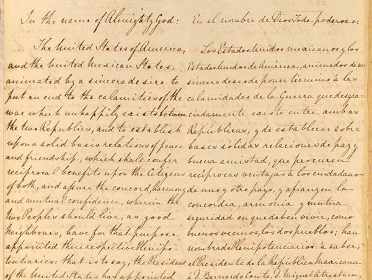 In the name of Almighty God:
The United States of America,
and the United Mexican States,
animated by a sincere desire to
put an end to the calamities of the
war which unhappily exists between
the two Republics, and to establish
upon a solid basis relations of peace
and friendship, which shall confer
reciprocal benefits upon the Citizens
of both, and assure the concord, harmony
and mutual confidence, wherein the
two Peoples should live, as good
Neighbours, have for that purpose
appointed their respective Plenipo-
tentiaries: that is to say, the President
of the United States has appointed
En el nombre de Dios Todo poderoso:
Los Estados Unidos mexicanos y los
Estados Unidos de América, animados de un
sincero deseo de poner término a la
calamidades de la Guerra que desgra-
ciadamente existe entre ambas
Repúblicas, y de establecer sobre
bases sólidas relaciones de paz y
buena amistad, que procuren
recíprocas ventajas a los ciudadanos
de uno y otro pays, y afianzen la
concordia, armonía y mutua
seguridad en que deben vivir, como
buenos vecinos, los dos pueblos, han
nombrado Plenipotenciarios, a saber,
el Presidente de la República mexicana
á D. Bernardo Couto, D. Miguel Atristain,